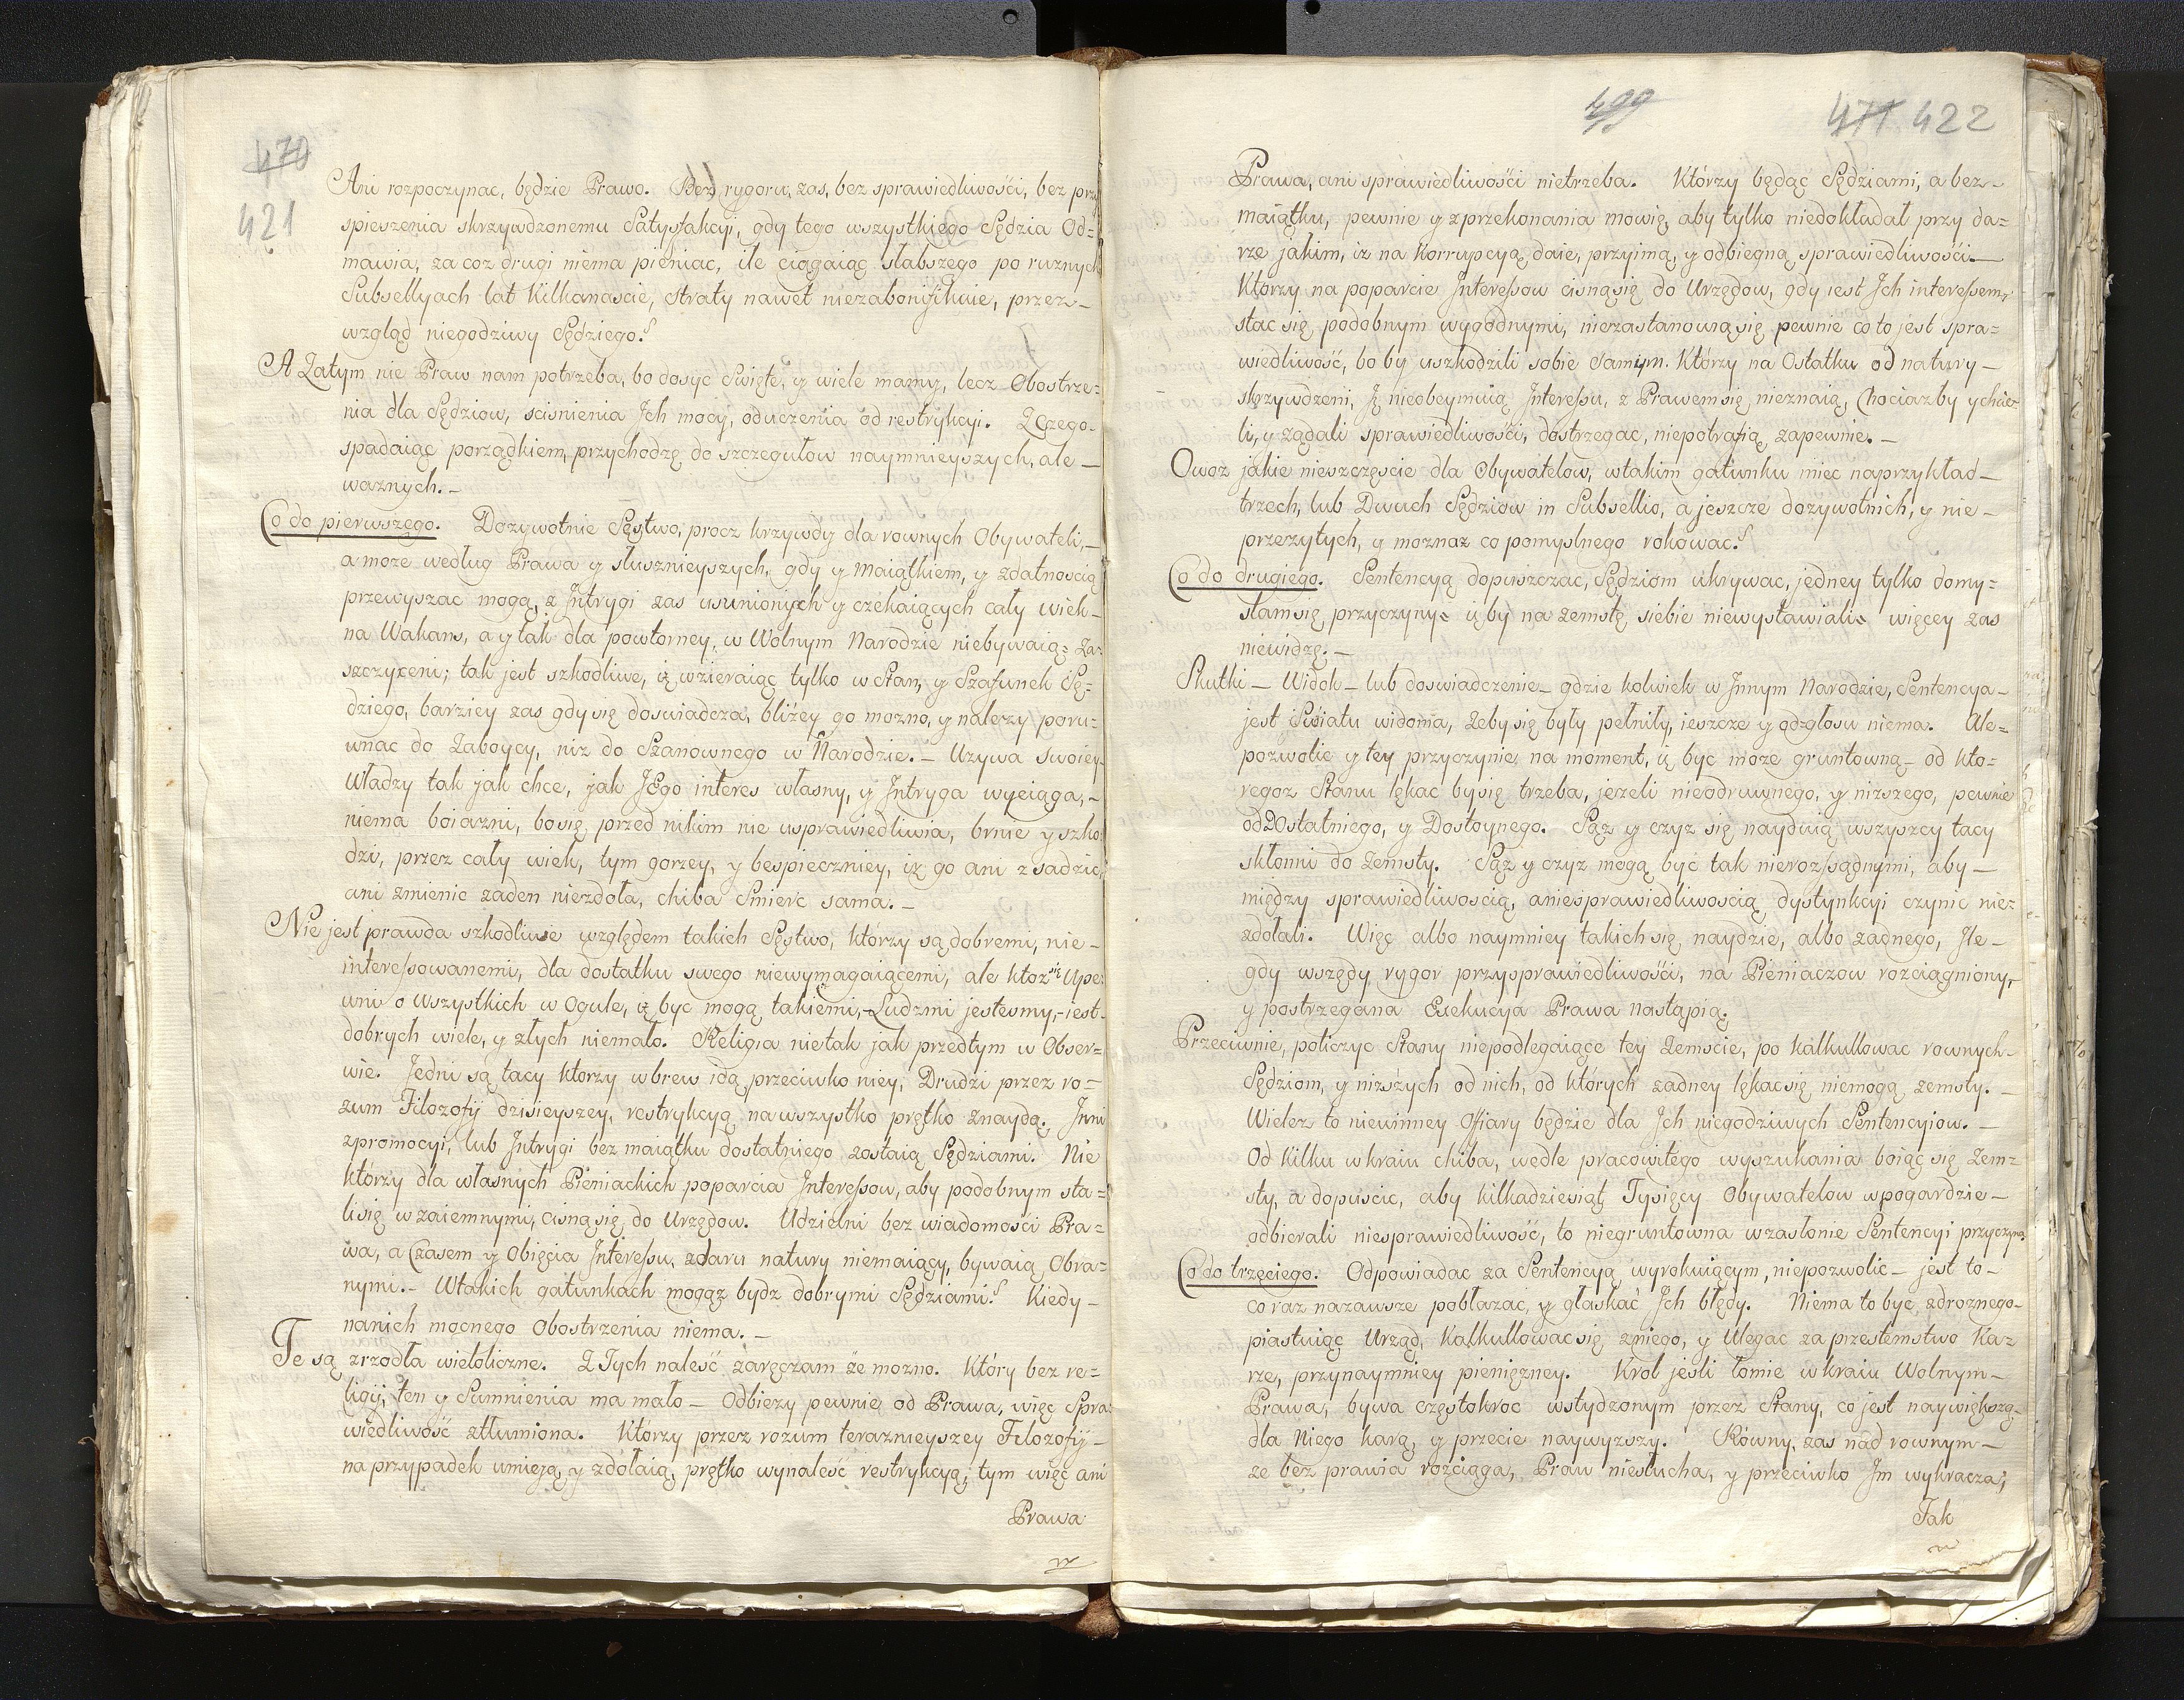 470
421
Ani rozpoczynac, będzie Prawo. Bez rygoru, zas, bez sprawiedliwości, bez przy
spieszenia skrzywdzonemu Satysfakcyi, gdy tego wszystkiego Sędzia Od=
mawia, za coz drugi niema pieniac, ile ciągaiąc słabszego po ruznych
Subsellyach lat Kilkanascie, straty nawet niezabonifikuie, przez –
wzgląd niegodziwy Sędziego?
A Zatym nie Praw nam potrzeba, bo dosyc Swięte, y wiele mamy, lecz Obostrze=
nia dla Sędziow, scisnienia Ich mocy, oduczenia od restrykcyi. Z Czego
spadaiąc porządkiem, przychodzę do szczegułow naymnieyszych, ale –
waznych. –
Co do pierwszego. Dozywotnie Sęstwo, procz krzywdy dla rownych Obywateli, –
a moze według Prawa y słusznieyszych, gdy y Maiątkiem, y zdatnoscią
przewyszac mogą, z Intrygi zas usunionych y czekaiących cały wiek –
na Wakans, a y tak dla powtorney, w Wolnym Narodzie niebywaią= Za=
szczyceni; tak jest szkodliwe, iż wzieraiąc tylko w Stan, y Szafunek Sę=
dziego, barziey zas gdy się doswiadcza, bliźey go mozno, y nalezy poru=
wnac do Zaboycy, niz do Szanownego w Narodzie. – Uzywa swoiey
Władzy tak jak chce, jak JEgo interes własny, y Intryga wyciąga, –
niema boiazni, bo się przed nikim nie usprawiedliwia, brnie y szko=
dzi, przez cały wiek, tym gorzey, y bespieczniey, iż go ani zsadzic
ani zmienic zaden niezdoła, chiba Smierc sama. –
Nie jest prawda szkodliwe względem takich Sęstwo, ktorzy są dobremi, nie –
interessowanemi, dla dostatku swego niewymagaiącemi, ale ktoz się Upe=
wni o wszystkich w Ogule, iż byc mogą takiemi, – Ludzmi jestesmy, – jest
dobrych wiele, y złych niemało. Religia nie tak jak przedtym w Obser=
wie. Jedni są tacy ktorzy wbrew idą przeciwko niey, Drudzi przez ro=
zum Filozofij dzisieyszey, restrykcyą na wszystko prętko znaydą. Inni
zpromocyi, lub Intrygi bez maiątku dostatniego zostaią Sędziami. Nie
ktorzy dla własnych Pieniackich poparcia Interessow, aby podobnym sta=
li się wzaiemnymi, cisną się do Urzędow. Udzielni bez wiadomosci Pra=
wa, a Czasem y Obięcia Interessu, zdaru natury niemaiący, bywaią Obra=
nymi. – Wtakich gatunkach mogąz bydz dobrymi Sędziami? Kiedy –
nanich mocnego Obostrzenia niema. –
Te są zrzodła wieloliczne. Z Tych naleść zaręczam że mozno. Ktory bez re=
ligij, ten y Sumnienia ma mało – Odbiezy pewnie od Prawa, więc Spra=
wiedliwość stłumiona. Ktorzy przez rozum teraznieyszey Filozofij –
na przypadek umieją, y zdołaią, prętko wynaleść restrykcyą, tym więc ani
Prawa
499
471 422
Prawa, ani sprawiedliwości nietrzeba. Ktorzy będąc Sędziami, a bez –
maiątku, pewnie y zprzekonania mowię, aby tylko niedokładał przy da=
rze jakim, iz na Korrupcyą daie, przyimą, y odbiegną sprawiedliwości. –
Ktorzy na poparcie Interessow cisną się do Urzędow, gdy jest Ich interessem,
stac się podobnym wygodnymi, niezastanowią się pewnie co to jest spra=
wiedliwość, bo by uszkodzili sobie samym. Ktorzy na Ostatku od natury –
skrzywdzeni, Iż nieobeymuią Interessu, z Prawem się nieznaią, Chociazby y chcie=
li, y ządali sprawiedliwości, dostrzegac, niepotrafią zapewnie. –
Owoz jakie nieszczęscie dla Obywatelow, wtakim gatunku miec naprzykład –
trzech, lub Dwuch Sędziow in Subsellio, a jeszcze dozywotnich, y nie –
przezytych, y moznaz co pomyslnego rokowac?
Co do drugiego. Sentencyą dopuszczac, Sędziom ukrywac, jedney tylko domy=
slam się przyczyny, iż by na zemstę siebie niewystawiali, więcey zas
niewidzę. –
Skutki – Widok – lub doswiadczenie – gdzie kolwiek w Innym Narodzie, Sentencya –
jest Swiatu widoma, zeby się były pełniły, jeszcze y odgłosu niema. Ale=
pozwolic y tey przyczynie na moment, iż byc moze gruntowną – od kto=
regoz Stanu lękac by się trzeba, jezeli nieodruwnego, y nizszego, pewnie
od Dostatniego, y Dostoynego. Sąz y czyz się nayduią wszyscy tacy
skłonni do zemsty. Sąz y czyz mogą byc tak nierozsądnymi, aby –
między sprawiedliwoscią, a niesprawiedliwoscią dystynkcyi czynic nie=
zdołali. Więc albo naymniey takich się naydzie, albo zadnego, Ile –
gdy wszędy rygor przy sprawiedliwości, na Pieniaczow rozciągniony,
y postrzegana Exekucya Prawa nastąpią.
Przeciwnie, policzyc Stany niepodlegaiące tey Zemscie, po Kalkullowac rownych –
Sędziom, y nizszych od nich, od ktorych zadney lękac się niemogą zemsty. –
Wielez to niewinney Ofiary będzie dla Ich niegodziwych Sentencyiow. –
Od Kilku w kraiu chiba, wedle pracowitego wyszukania boiąc się Zem=
sty, a dopuscic, aby Kilkadziesiąt Tysięcy Obywatelow wpogardzie –
odbierali niesprawiedliwość, to niegruntowna wzasłonie Sentencyi przyczyna.
Co do trzęciego. Odpowiadac za Sentencyą wyrokuiącym, niepozwolic – jest to –
co raz nazawsze pobłazac, y głaskać Ich błędy. Niema to byc zdroznego –
piastuiąc Urząd, Kalkullowac się zniego, y Ulegac za przestemstwo Ka=
rze, przynaymniey pienięzney. Krol jesli łomie w kraiu Wolnym –
Prawa, bywa częstokroc wstydzonym przez Stany, co jest naywiększą –
dla Niego karą, y przecie naywyzszy. Rowny, zas nad rownym –
ze bez prawia rozciąga, Praw niesłucha, y przeciwko Im wykracza;
Tak